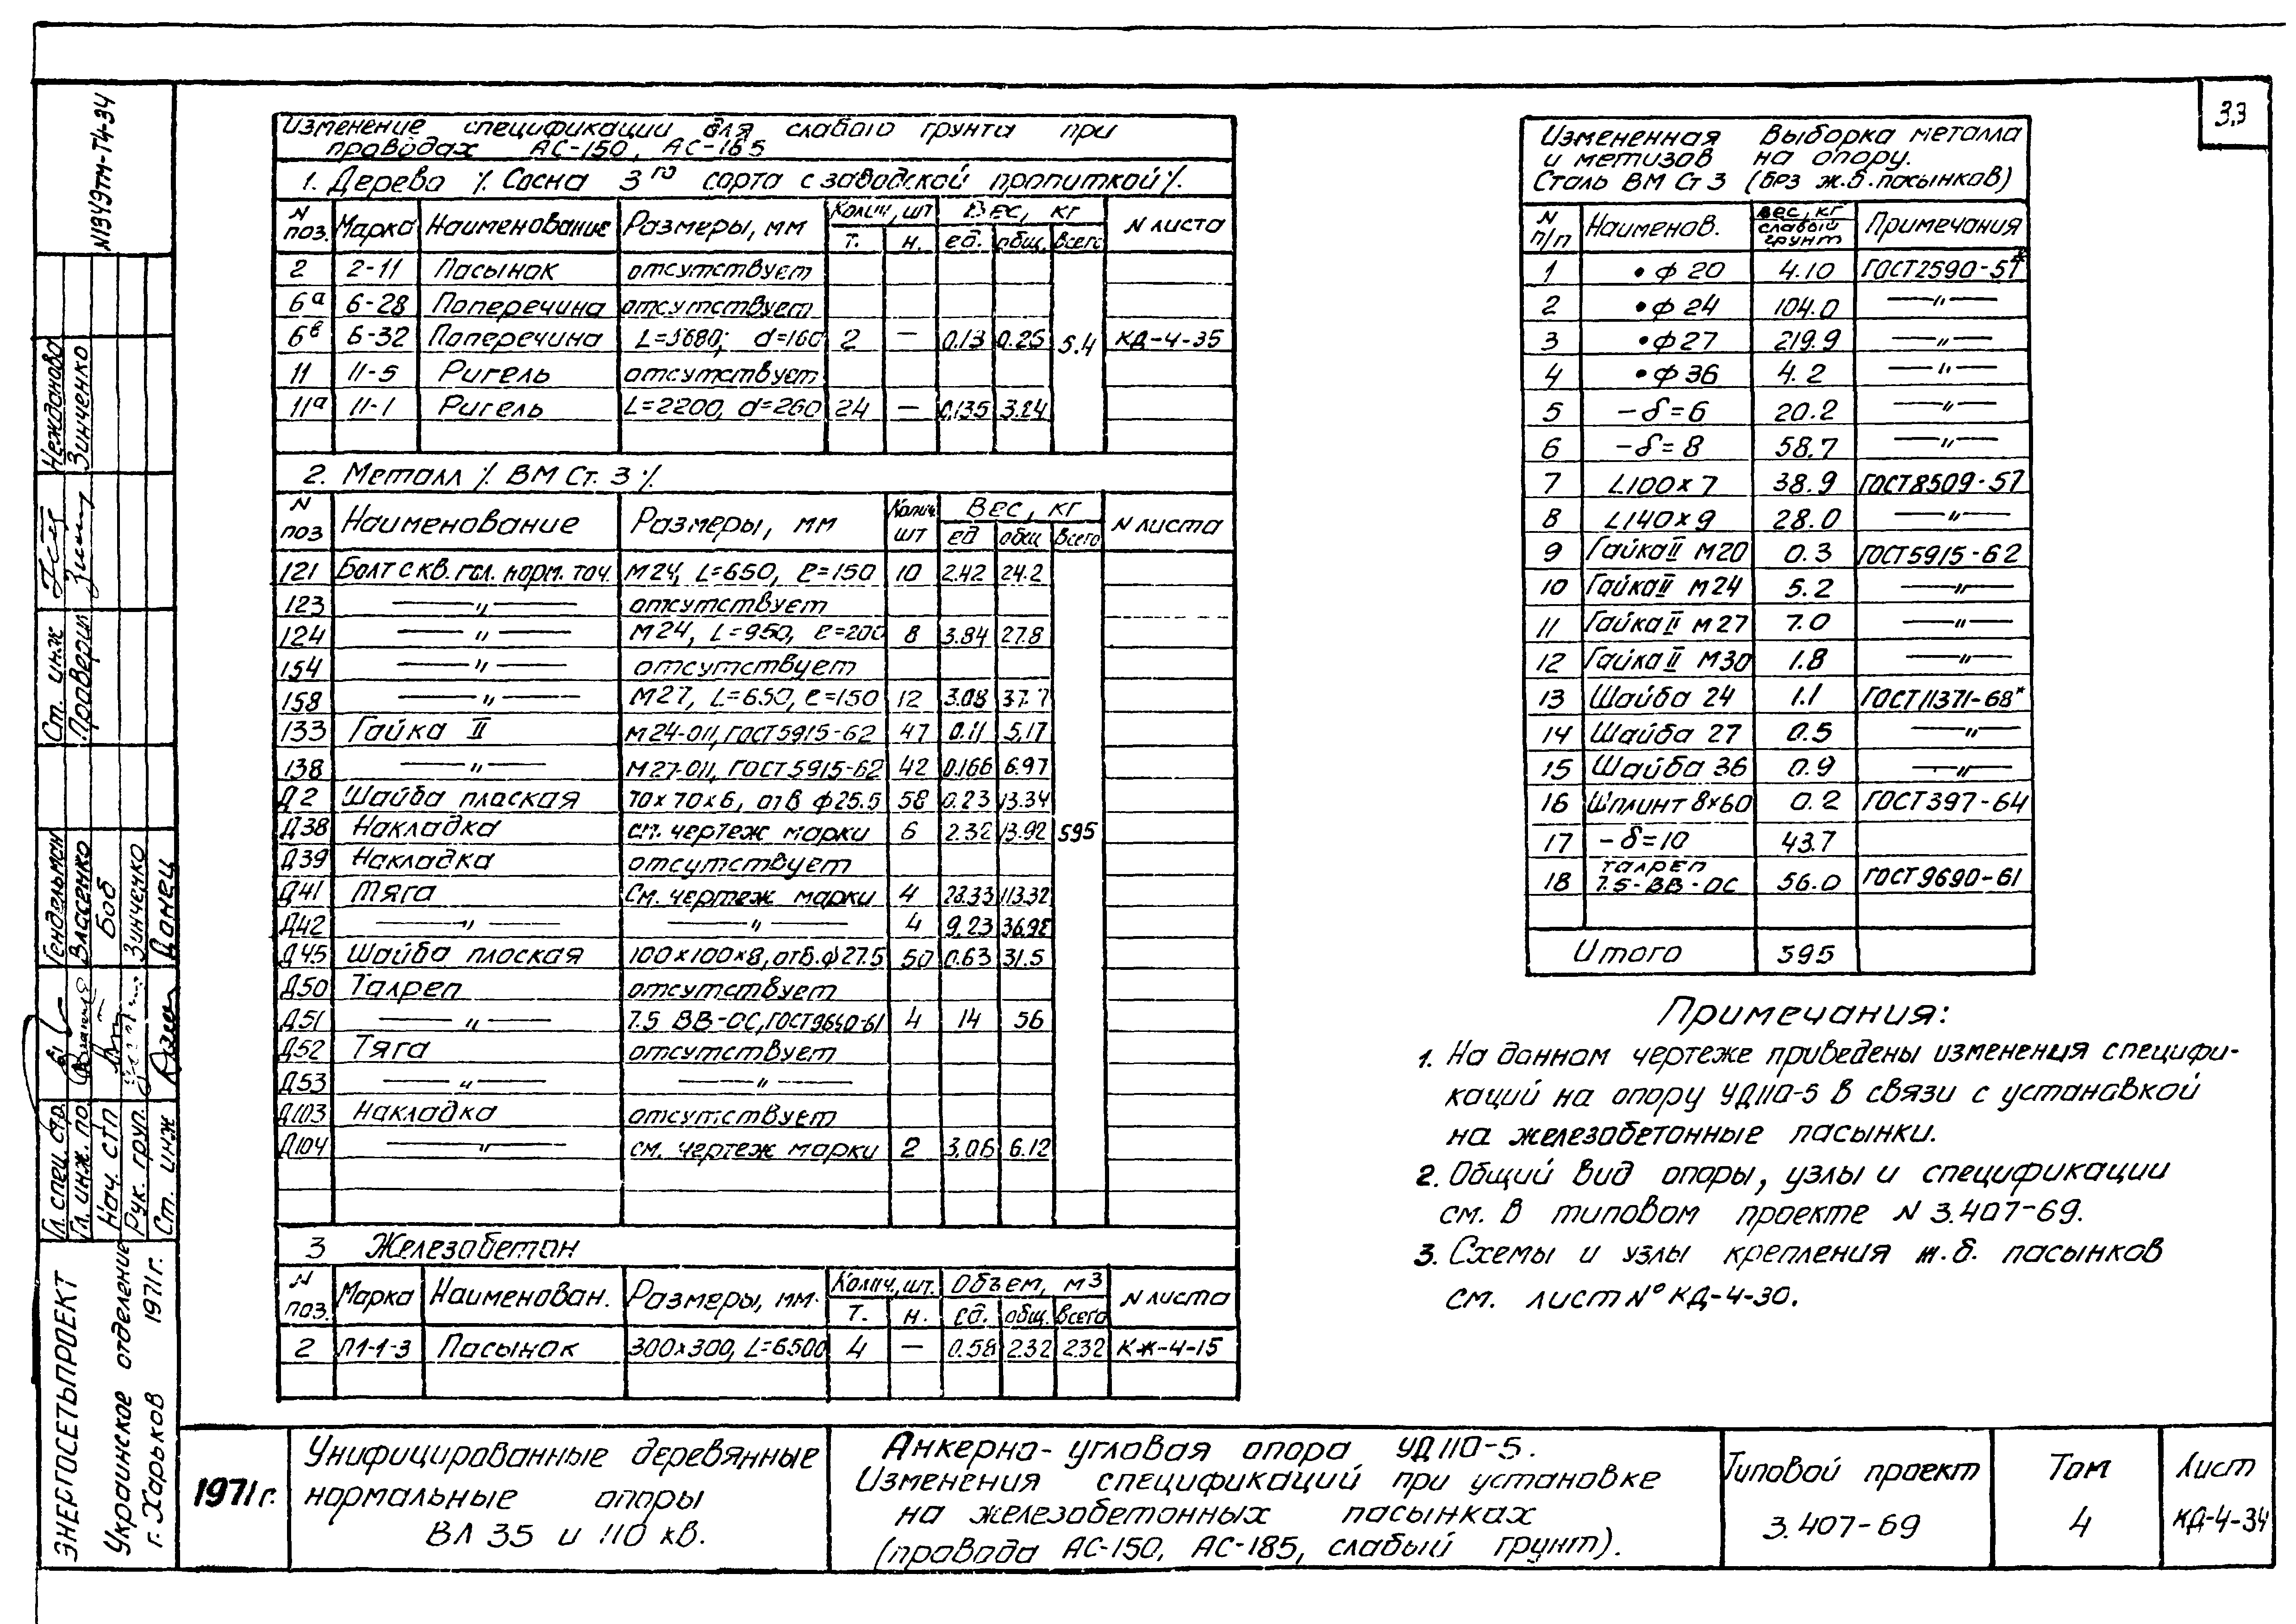 33
N1949тм-Т4-34
Изменение спецификации для слабого грунта при
проводах АС-150, АС-185
1. Дерево ٪ Сосна 3го сорта с заводской пропиткой ٪.
N поз. Марка Наименование Размеры, мм Колич, шт Вес, кг N листа
т. н. ед. общ. всего
2 2-11 Пасынок отсутствует
6а 6-28 Поперечина отсутствует
6в 6-32 Поперечина d=160 2 — 0.13 0.25 5.4 КД-4-35
11 11-5 Ригель отсутствует
11а 11-1 Ригель L=2200, d=260 24 — 0.135 3.24
2. Металл ٪ ВМ Ст. 3 ٪
N поз Наименование Размеры, мм Колич. шт Вес, кг N листа
ед общ всего
121 Болт с кв. гол. норм. точ. М24, L=650, ℓ=150 10 2.42 24.2
123 —„— отсутствует
124 —„— М24, L=950, ℓ=200 8 3.84 27.8
154 —„— отсутствует
158 —„— М27, L=650, ℓ=150 12 3.08 37.7
133 Гайка II М24-011, ГОСТ 5915-62 47 0.11 5.17
138 —„— М27-011, ГОСТ 5915-62 42 0.166 6.97
Д2 Шайба плоская 70х70х6, отв ф25.5 58 0.23 13.34
Д38 Накладка см. чертеж марки 6 2.32 13.92 595
Д39 Накладка отсутствует
Д41 Тяга См. чертеж марки 4 28.33 113.32
Д42 —„— —„— 4 9.23 36.92
Д45 Шайба плоская 100х100х8, отв. ф27.5 50 0.63 31.5
Д50 Талреп отсутствует
Д51 —„— 7.5 ВВ-ОС, 4 14 56
Д52 Тяга отсутствует
Д53 —„— —„—
Д103 Накладка отсутствует
Д104 —„— см. чертеж марки 2 3.06 6.12
3 Железобетон
N поз. Марка Наименован. Размеры, мм. Колич., шт. Объем, м3 N листа
т. н. ед. общ. всего
2 П1-1-3 Пасынок 300х300, L=6500 4 — 0.58 2.32 2.32 КЖ-4-15
Измененная выборка металла
и метизов на опору.
Сталь ВМ Ст 3 (без ж.б. пасынков)
N п/п Наименов. Вес, кг слабый грунт Примечания
1 •ф 20 4.10 ГОСТ 2590-57*
2 •ф 24 104.0 —„—
3 •ф 27 219.9 —„—
4 •ф 36 4.2 —„—
5 -δ=6 20.2 —„—
6 -δ=8 58.7 —„—
7 L100х7 38.9 ГОСТ 8509-57
8 L140х9 28.0 —„—
9 Гайка II М20 0.3 ГОСТ 5915-62
10 Гайка II М24 5.2 —„—
11 Гайка II М27 7.0 —„—
12 Гайка II М30 1.8 —„—
13 Шайба 24 1.1 ГОСТ 11371-68*
14 Шайба 27 0.5 —„—
15 Шайба 36 0.9 —„—
16 Шплинт 8х60 0.2 ГОСТ 397-64
17 -δ=10 43.7
18 Талреп 7.5-ВВ-ОС 56.0 ГОСТ 9690-61
Итого 595
Примечания:
1. На данном чертеже приведены изменения специфи-
каций на опору УД110-5 в связи с установкой
на железобетонные пасынки.
2. Общий вид опоры, узлы и спецификации
см. в типовом проекте N 3.407-69.
3. Схемы и узлы крепления ж.б. пасынков
см. лист N° КД-4-30.
Ст. инж Нежданова
Проверил Зинченко
Гл. спец. стр. Гендельман
Гл. инж. пр. Власенко
Нач. СТП Боб
Рук. груп. Зинченко
Ст. инж Донец
ЭНЕРГОСЕТЬПРОЕКТ
Украинское отделение
г. Харьков 1971г.
1971г.
Унифицированные деревянные
нормальные опоры
ВЛ 35 и 110 кв.
Анкерно-угловая опора УД110-5.
Изменения спецификаций при установке
на железобетонных пасынках
(провода АС-150, АС-185, слабый грунт).
Типовой проект
3.407-69
Том
4
Лист
КД-4-34